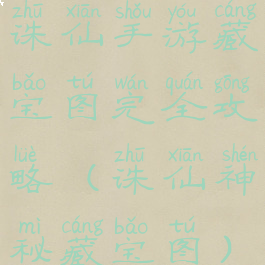 zhū xiān shǒu yóu cáng
诛仙手游藏
bǎo tú wán quán gōng
宝图完全攻
lüè zhū xiān shén
略（诛仙神
mì cáng bǎo tú
秘藏宝图）